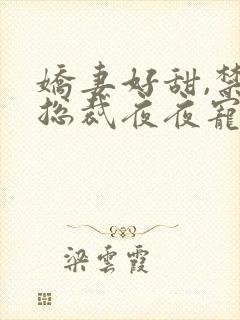 嬌妻好甜,禁
總裁夜夜寵
梁雲霞